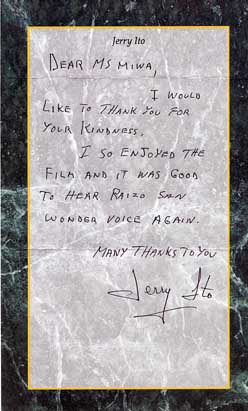 Jerry Ito
DEAR MS MIWA,
I WOULD
LIKE TO THANK YOU FOR
YOUR KINDNESS.
I SO ENJOYED THE
FILM AND IT WAS GOOD
TO HEAR RAIZO SAN
WONDER VOICE AGAIN.
MANY THANKS TO YOU
Jerry Ito